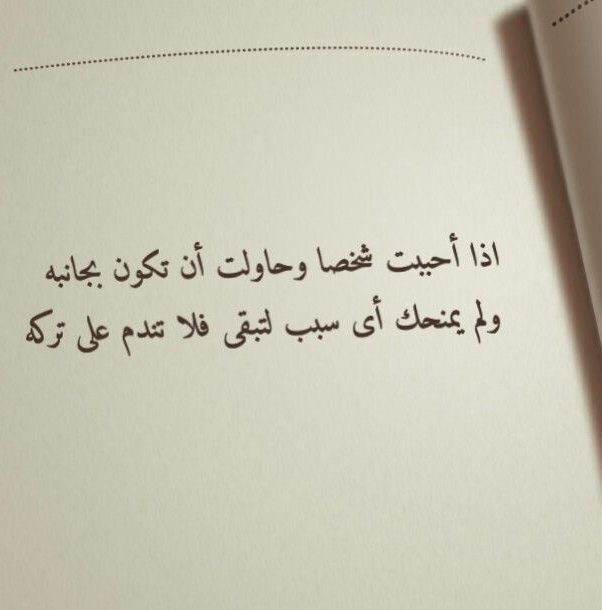 اذا أحببت شخصا وحاولت أن تكون بجانبه
ولم يمنحك أى سبب لتبقى فلا تندم على تركه